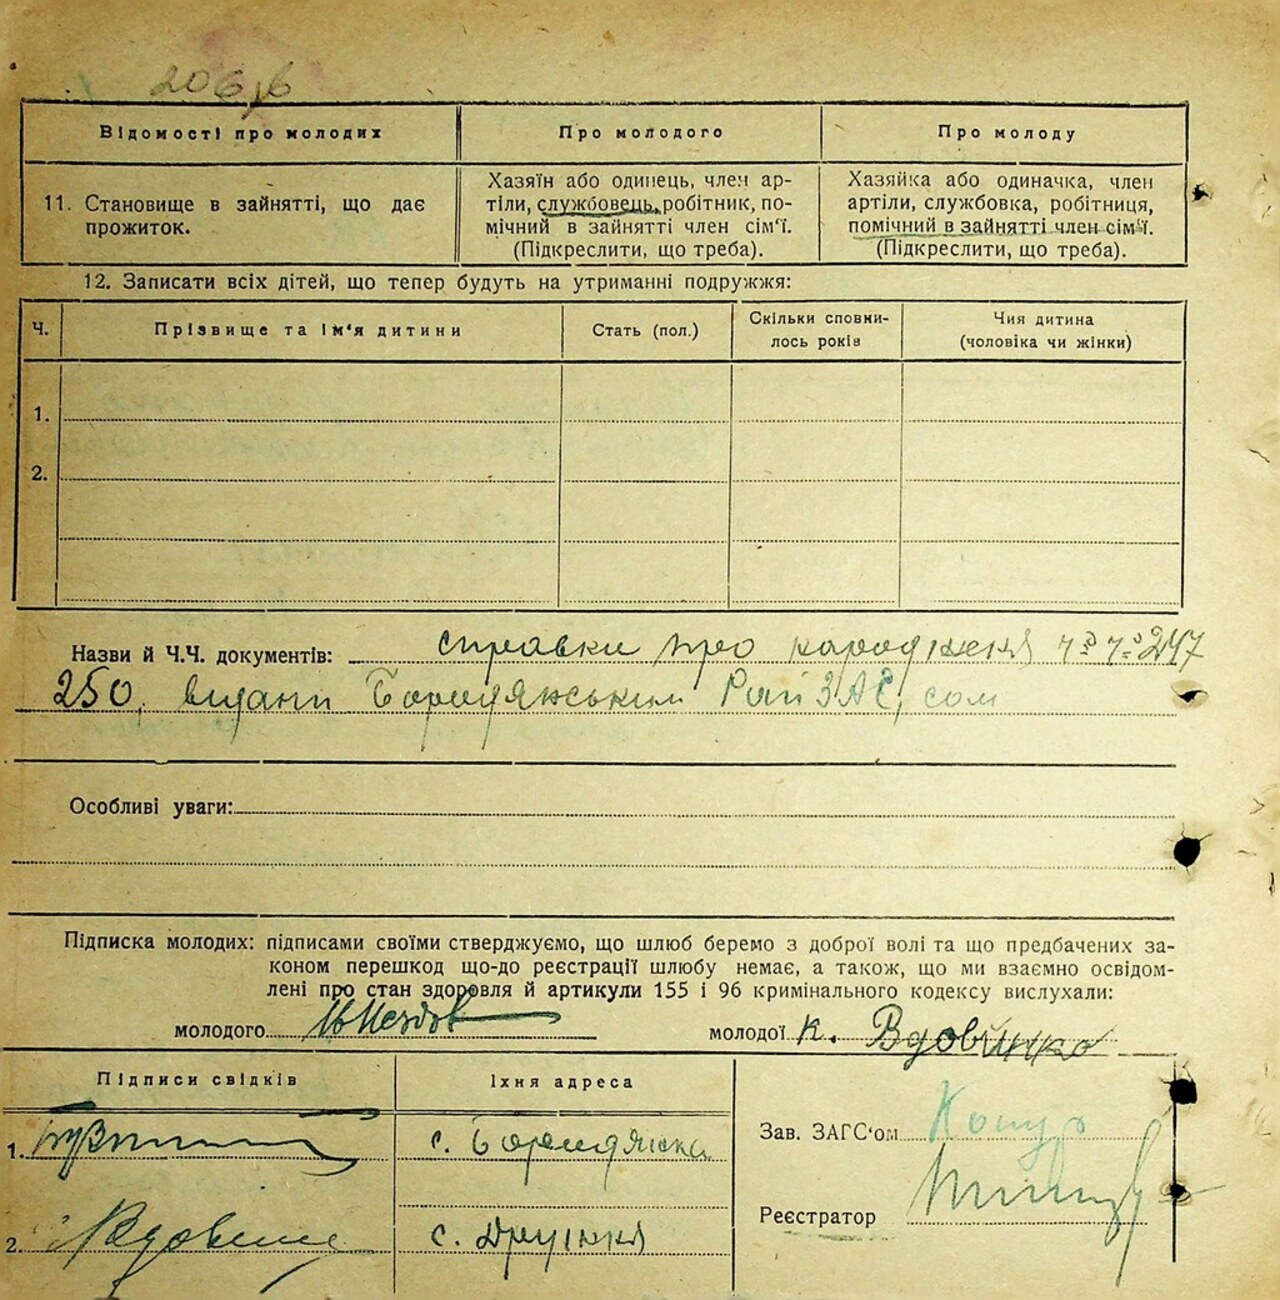 206
Відомості про молодих
Про молодого
Про молоду
11. Становище в зайнятті, що дає
прожиток.
Хазяїн або одинець, член ар-
тіли, службовець, робітник, по-
мічний в зайнятті член сім'ї.
(Підкреслити, що треба).
Хазяйка або одиначка, член
артіли, службовка, робітниця,
помічний в зайнятті член сім'ї.
(Підкреслити, що треба).
12. Записати всіх дітей, що тепер будуть на утриманні подружжя:
Ч.
Прізвище та ім'я дитини
Стать (пол.)
Скільки сповни-
лось років
Чия дитина
(чоловіка чи жінки)
1.
2.
Назви й Ч.Ч. документів: справки про народження 247
250, видани Бородяжським РайЗАГсом
Особливі уваги:
Підписка молодих: підписами своїми стверджуємо, що шлюб беремо з доброї волі та що предбачених за-
коном перешкод що-до реєстрації шлюбу немає, а також, що ми взаємно освідом-
лені про стан здоровля й артикули 155 і 96 кримінального кодексу вислухали:
молодого
молодої К. Вдовинко
Підписи свідків
Їхня адреса
1.
с. Бородянка
2.
с. Дружня
Зав. ЗАГС'ом
Реєстратор